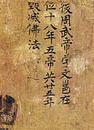 後周武帝宇文邕在
位十八年五帝共廿五年
毀滅佛法